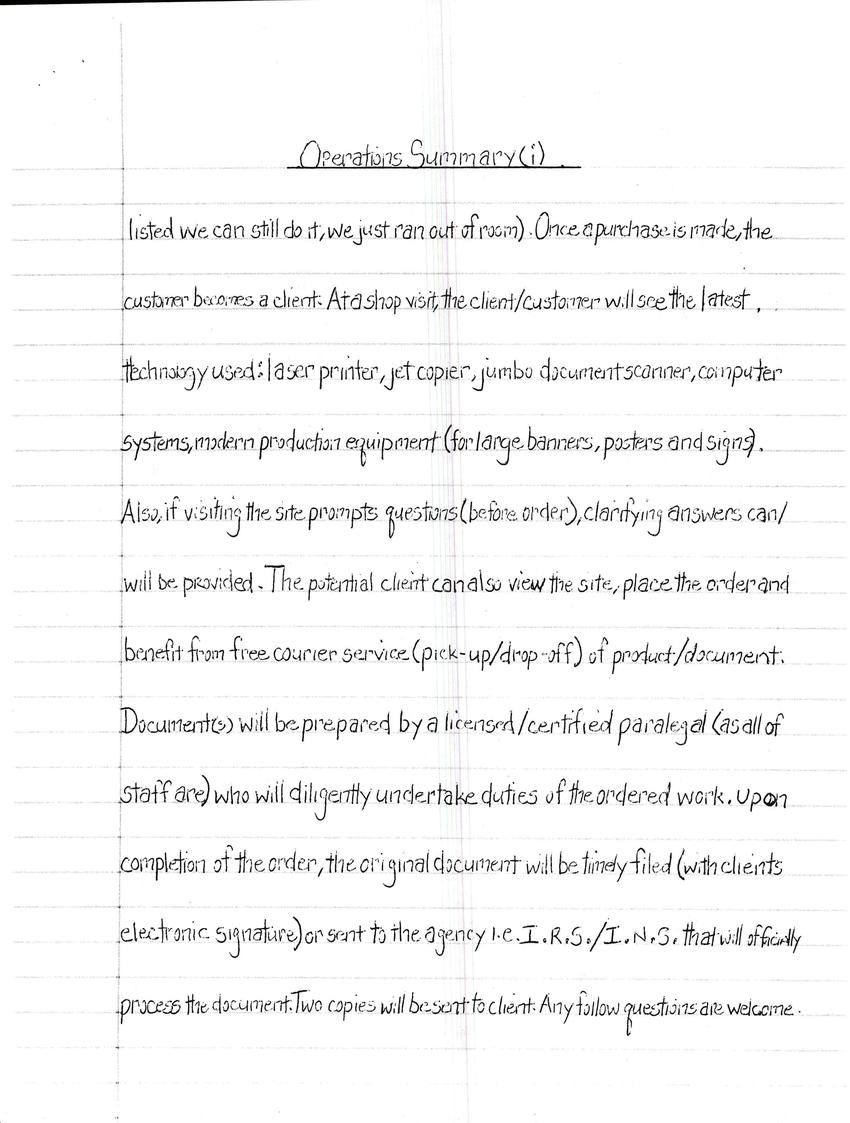 Operations Summary (i)
listed we can still do it, we just ran out of room). Once a purchase is made, the
customer becomes a client. At a shop visit, the client/customer will see the latest
technology used: laser printer, jet copier, jumbo document scanner, computer
systems, modern production equipment (for large banners, posters and signs).
Also, if visiting the site prompts questions (before order), clarifying answers can/
will be provided. The potential client can also view the site, place the order and
benefit from free courier service (pick-up/drop-off) of product/document.
Document(s) will be prepared by a licensed/certified paralegal (as all of
staff are) who will diligently undertake duties of the ordered work. Upon
completion of the order, the original document will be timely filed (with clients
electronic signature) or sent to the agency i.e. I.R.S./I.N.S. that will officially
process the document. Two copies will be sent to client. Any follow questions are welcome.